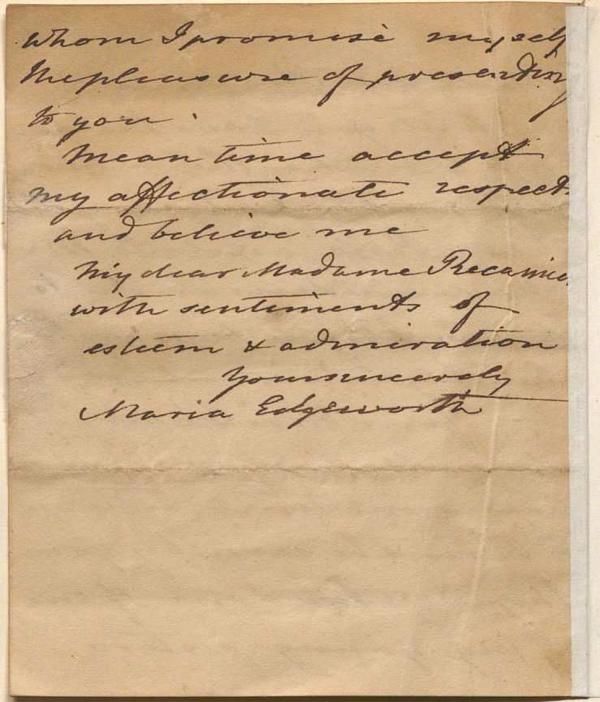 whom I promise myself
the pleasure of presenting
to you.
Mean time accept
my affectionate respect
and believe me
My dear Madame Recamier
with sentiments of
esteem & admiration
Yours sincerely
Maria Edgeworth